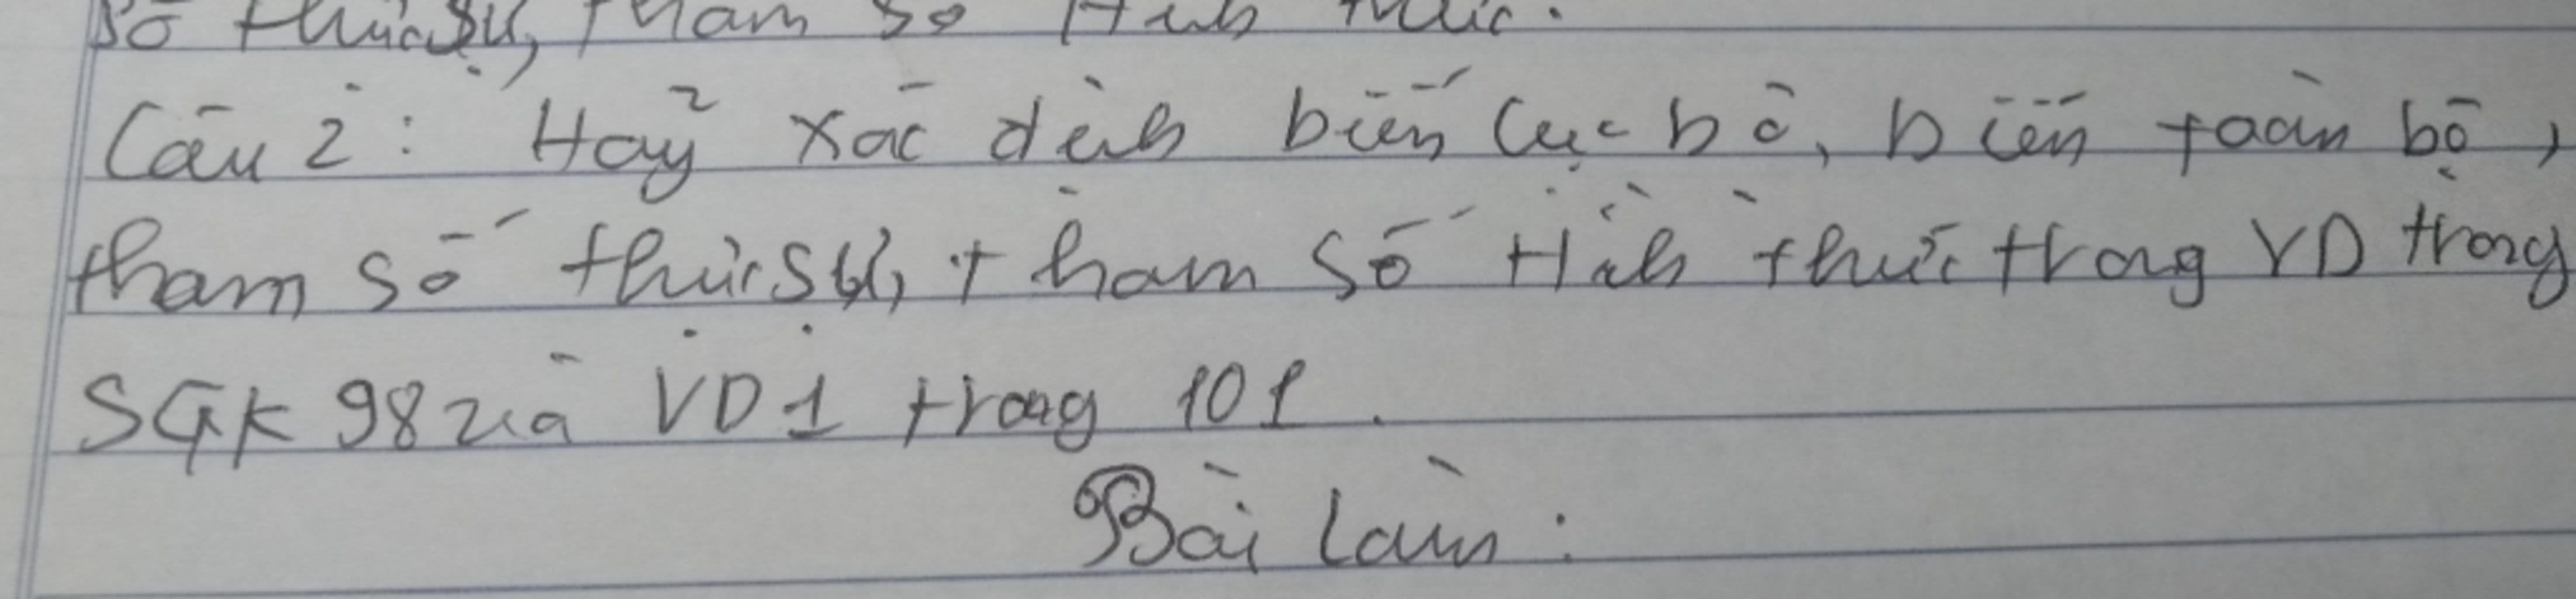 số thực sự, tham số hình thức.
Câu 2: Hãy xác định biến cục bộ, biến toàn bộ,
tham số thực sự, tham số hình thức trong VD trong
SGK 98 và VD1 trong 101.
Bài làm: